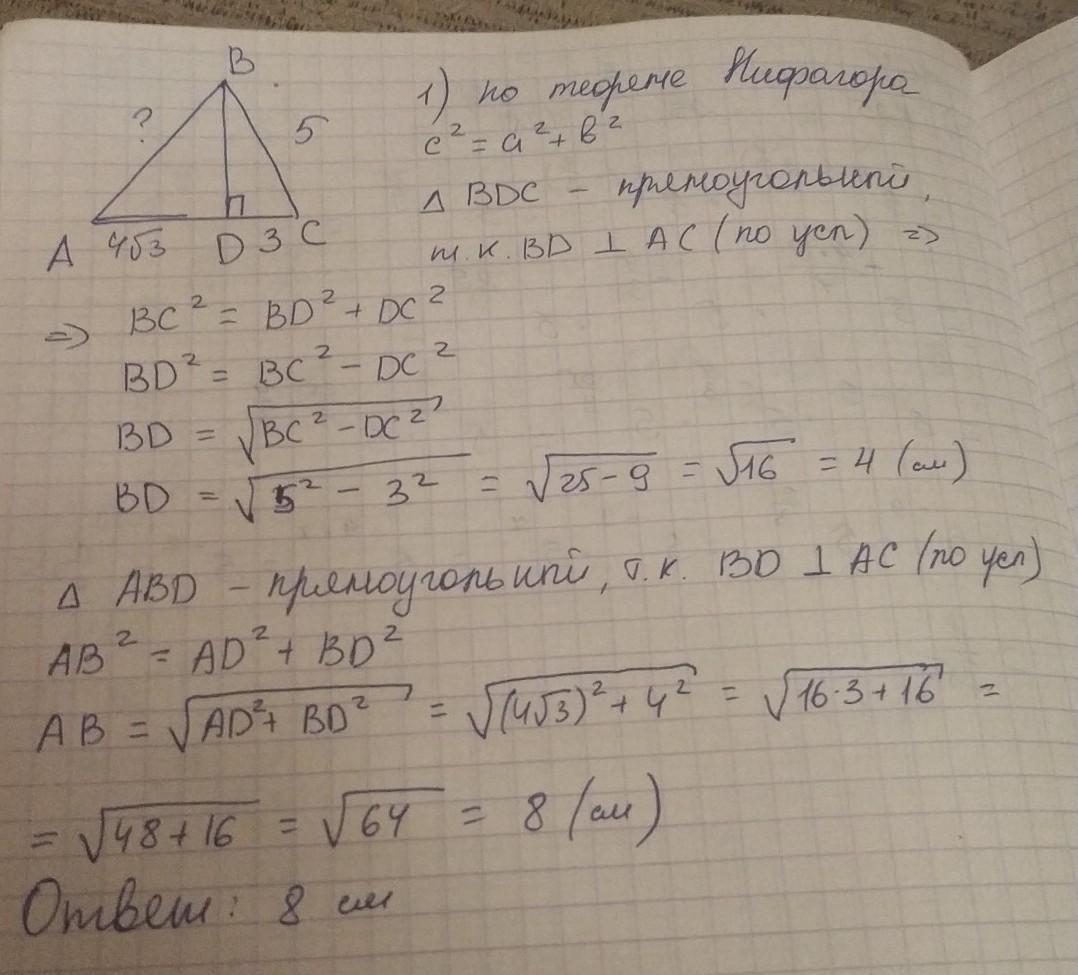 B
? 5
A 4√3 D 3 C
1) по теореме Пифагора
c² = a² + b²
Δ BDC – прямоугольный,
т.к. BD ⊥ AC (по усл) =>
=> BC² = BD² + DC²
BD² = BC² – DC²
BD = √(BC² – DC²)
BD = √(5² – 3²) = √(25 – 9) = √16 = 4 (см)
Δ ABD – прямоугольный, т.к. BD ⊥ AC (по усл)
AB² = AD² + BD²
AB = √(AD² + BD²) = √((4√3)² + 4²) = √(16·3 + 16) =
= √(48 + 16) = √64 = 8 (см)
Ответ: 8 см